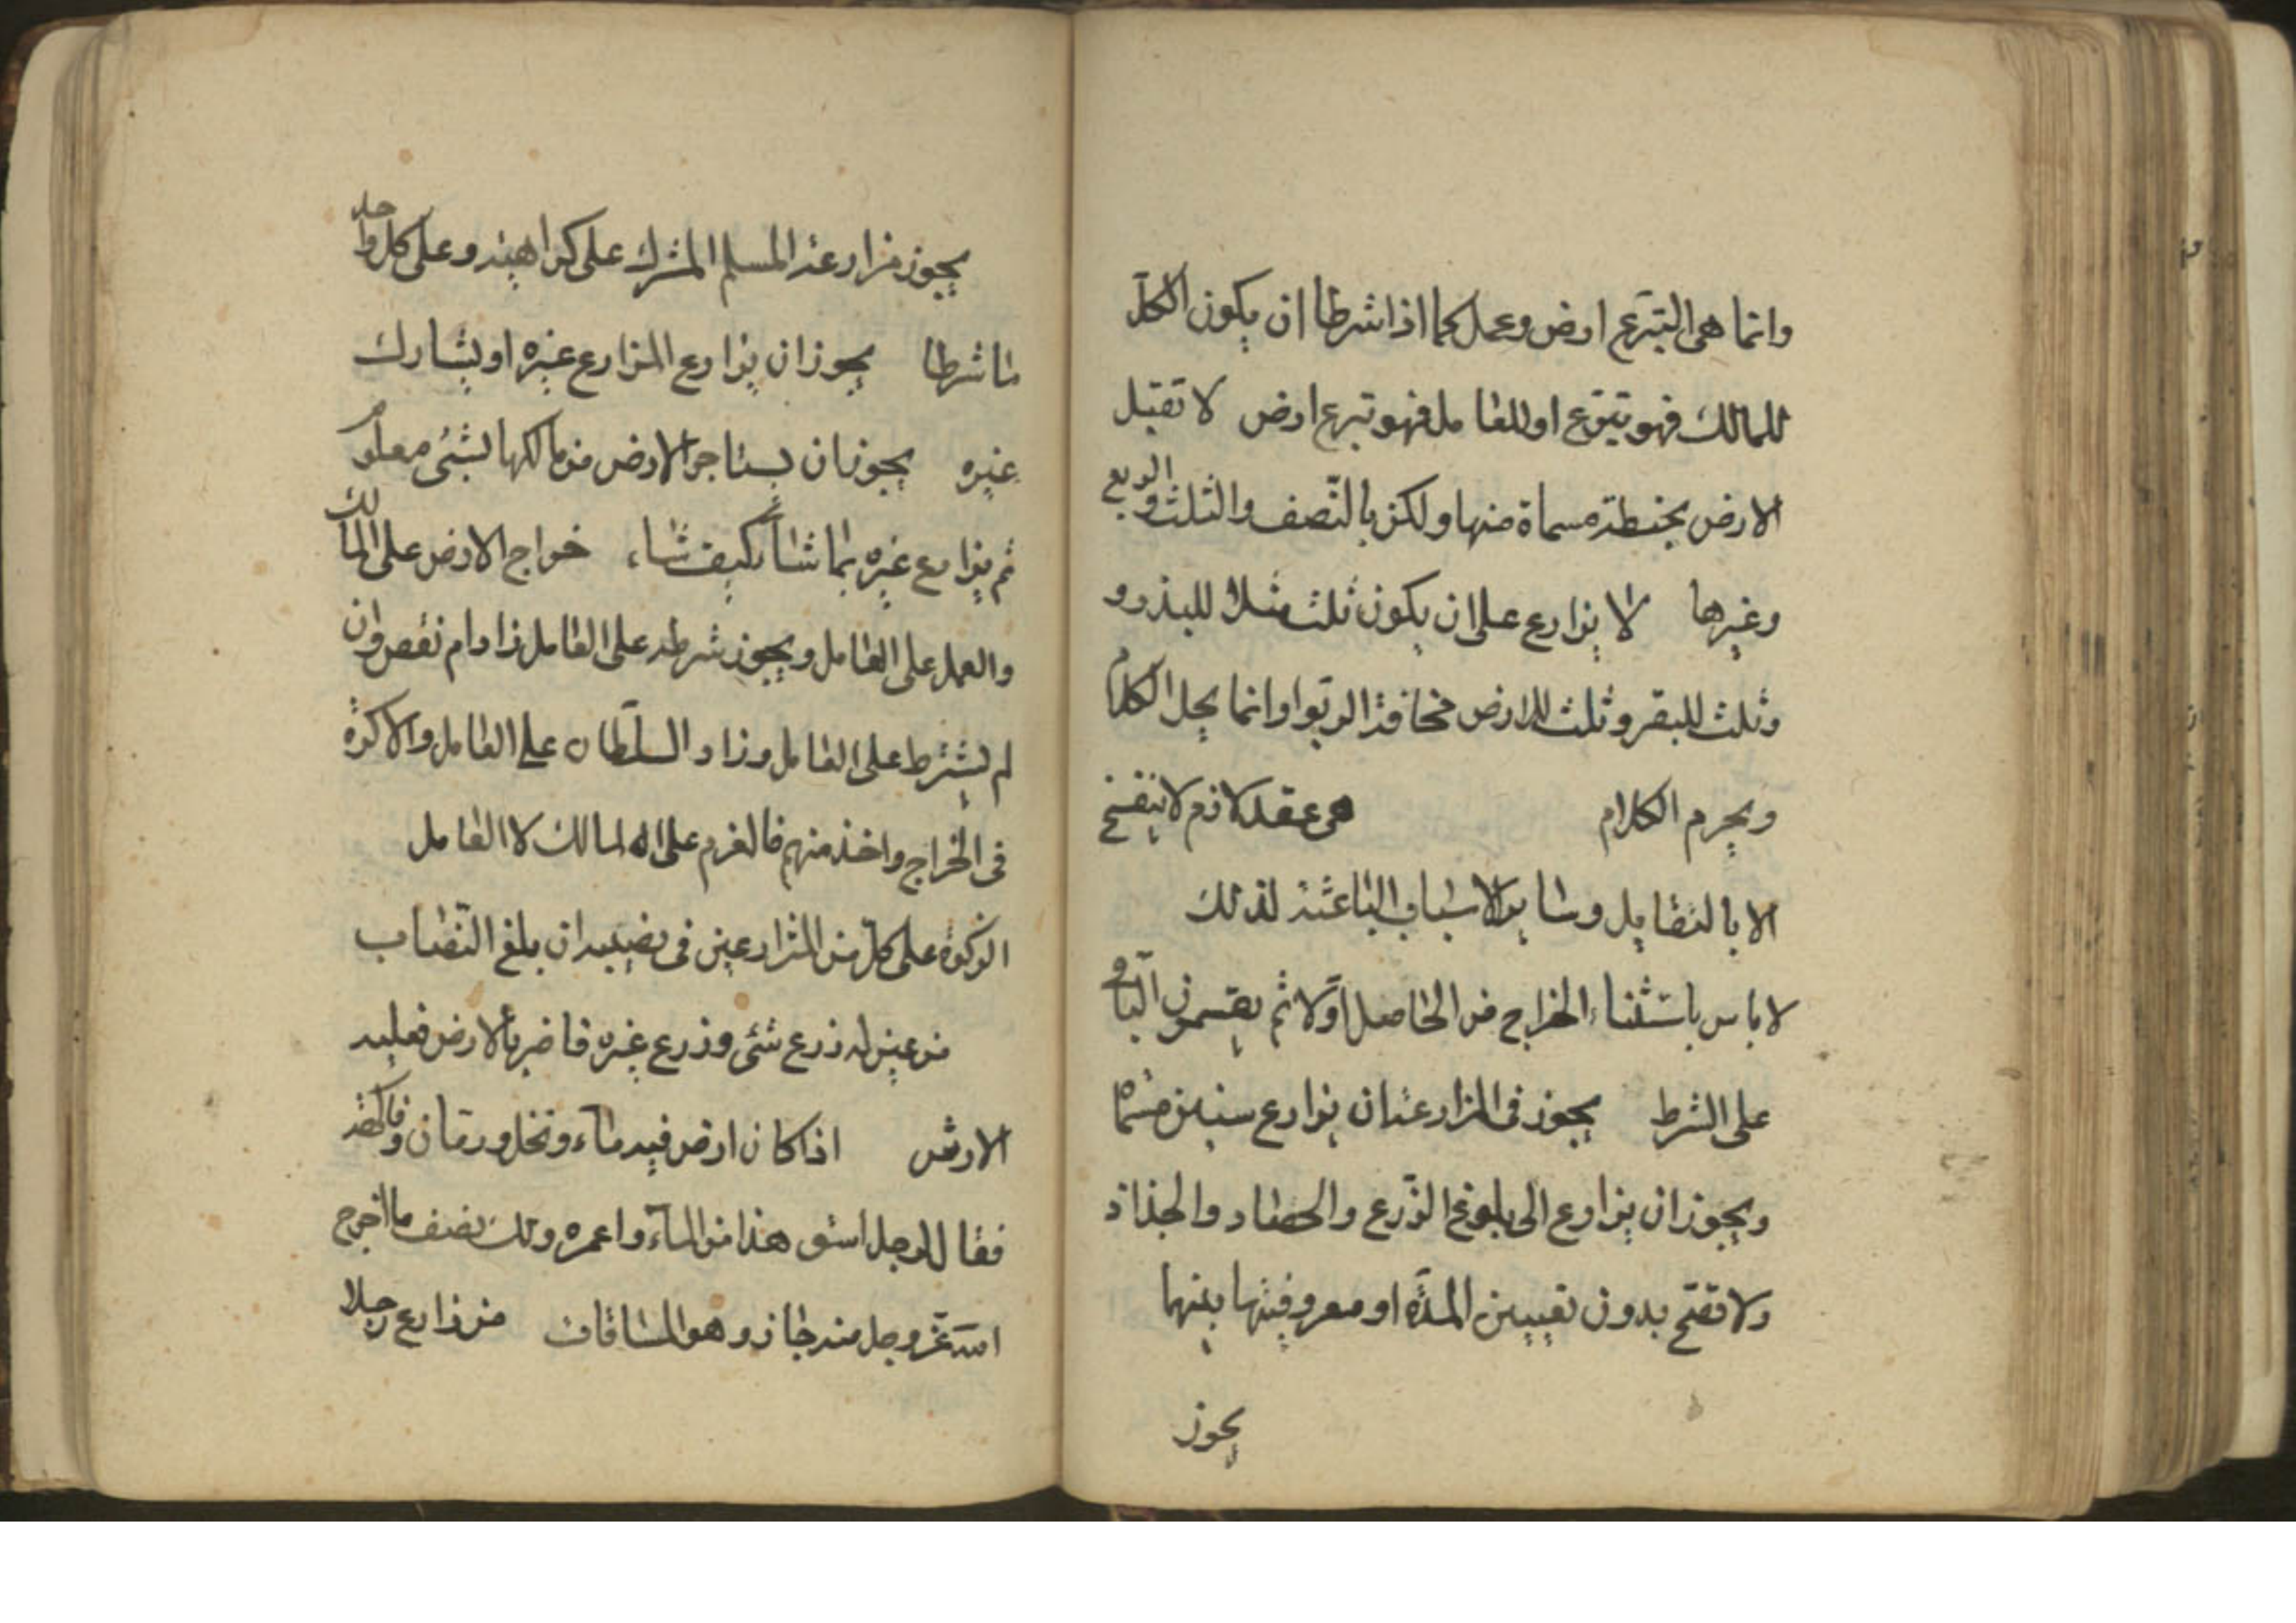 وانما هى التبرع ارض وعمل كما اذا شرطا ان يكون الكل
للمالك فهو تبرع او للعامل فهو تبرع ارض لا تقبل
الارض بحنطة مسماة منها ولكن بالنّصف والثلث والربع
وغيرها لا يزارع على ان يكون ثلث مثلا للبذر و
وثلث للبقر وثلث للارض مخافة الربوا وانما يحل الكلام
ويحرم الكلام هى عقد لازم لا ينفسخ
الا بالتقايل وساير الاسباب الباعثة لذلك
لا باس باستثناء الخراج من الحاصل اولا ثم يقتسمون الباقى
على الشرط يجوز فى المزارعة ان يزارع سنين
ويجوز ان يزارع الى بلوغ الزّرع والحصاد والجذاذ
ولا تصّح بدون تعيين المدّة او معروفيتها بينهما
يجوز
يجوز مزارعة المسلم المشرك على كراهية وعلى كل واحد
ما شرطا يجوز ان يزارع المزارع غيره او يشارك
غيره يجوز ان يستاجر الارض من مالكها بشئ معلوم
ثم يزارع غيره بما شاء كيف شاء خراج الارض على المالك
والعمل على العامل ويجوز شرطه على العامل زاد ام نقص وان
لم يشترط على العامل وزاد السلطان على العامل والاكرة
فى الخراج واخذ منهم فالغرم على المالك لا العامل
الزكوة على كل من المزارعين فى نصيبه ان بلغ النّصاب
من عين له زرع شئ وزرع غيره فاضر بالارض فعليه
الارش اذا كان ارض فيه ماء ونخل ورمان وفاكهة
فقال لرجل اسق هذا من الماء واعمره ولك نصف ما اخرج
الله عزّ وجل منه جاز وهو المساقات من زارع رجلا